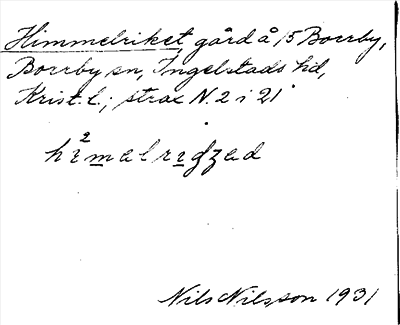 Himmelriket, gård å 15 Borrby,
Borrby sn, Ingelstads hd,
Krist. l.; strax N. 2 i 21
Nils Nilsson 1931